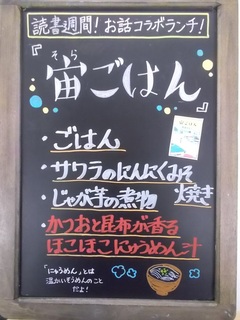 読書週間！お話コラボランチ！
『宙ごはん』
そら
・ごはん
・サワラのにんにくみそ
焼き
・じゃが芋の煮物
・かつおと昆布が香る
ほこほこにゅうめん汁
「にゅうめん」とは
温かいそうめんのこと
だよ！